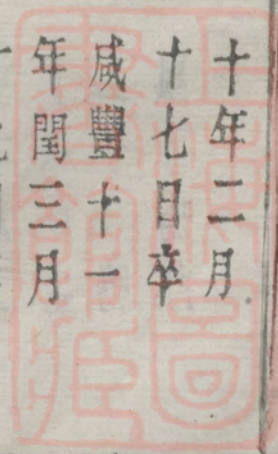 十年二月
十七日卒
咸豐十一
年閏三月